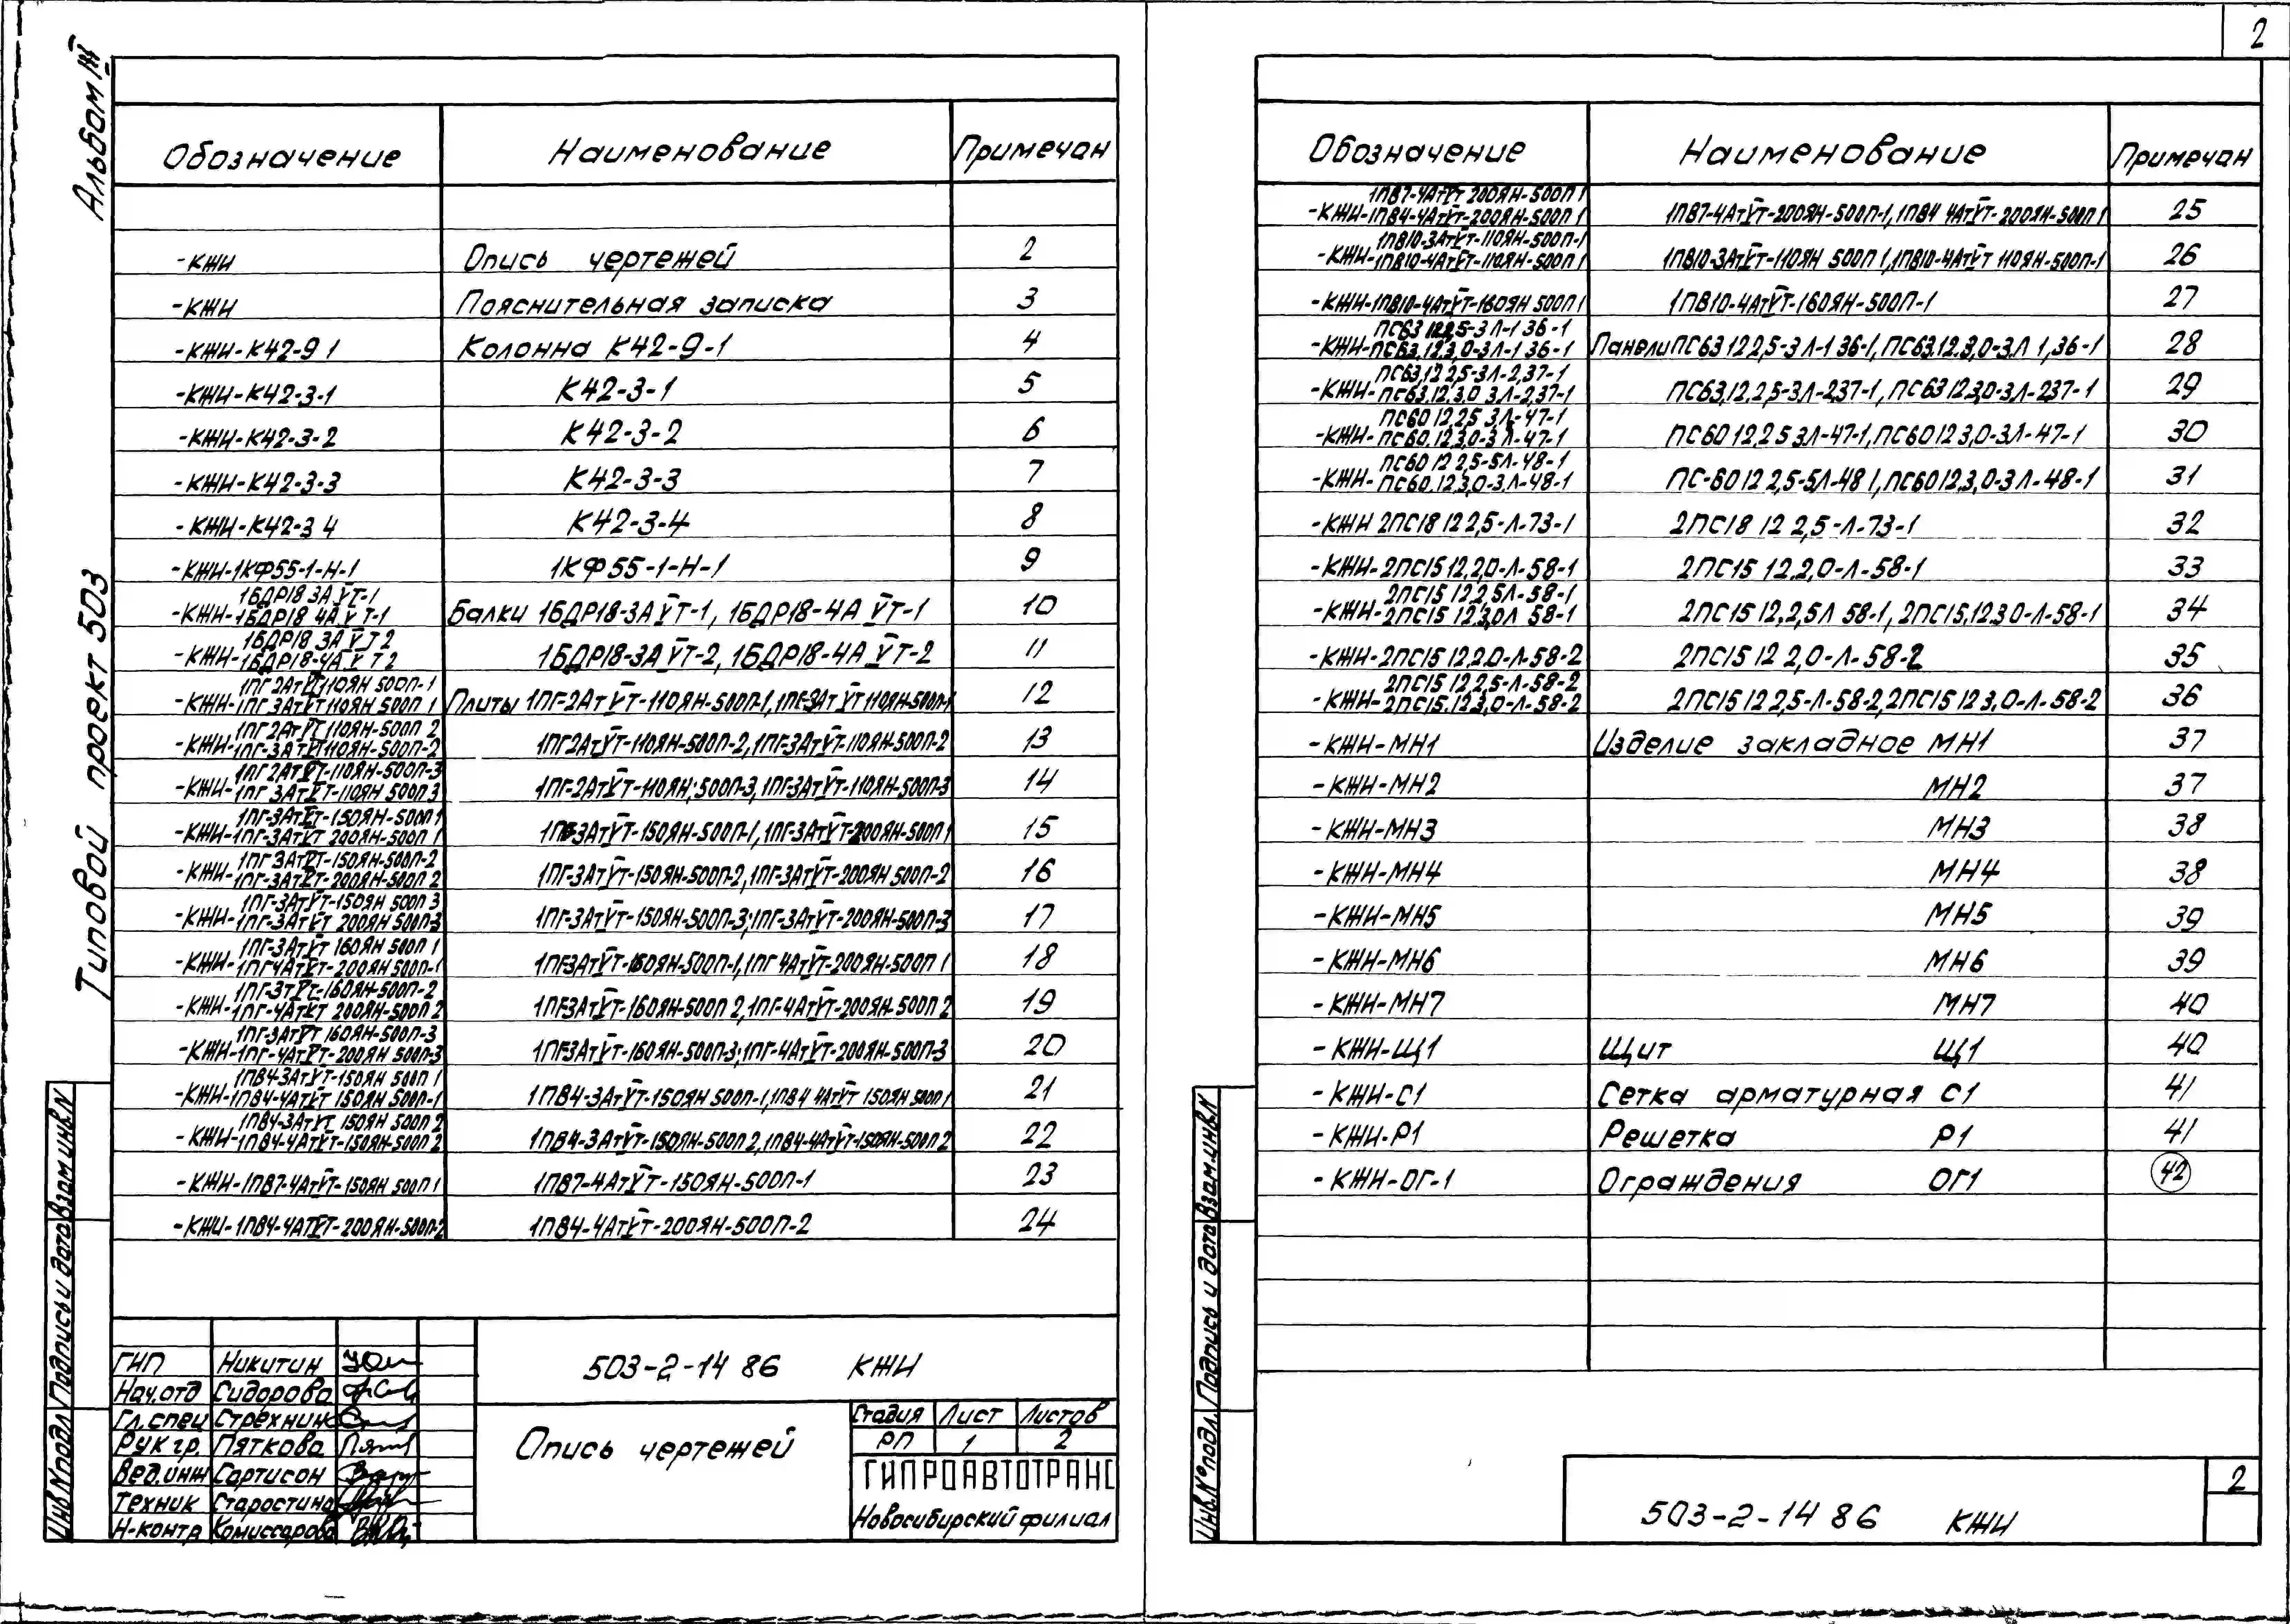 2
Альбом
Типовой проект 503
Обозначение Наименование Примечан
-КЖИ Опись чертежей 2
-КЖИ Пояснительная записка 3
-КЖИ-К42-9 1 Колонна К42-9-1 4
-КЖИ-К42-3-1 К42-3-1 5
-КЖИ-К42-3-2 К42-3-2 6
-КЖИ-К42-3-3 К42-3-3 7
-КЖИ-К42-3 4 К42-3-4 8
-КЖИ-1КФ55-1-Н-1 1КФ55-1-Н-1 9
1БДР18 3А V Т-1
-КЖИ-1БДР18 4А V Т-1 Балки 1БДР18-3А V Т-1, 1БДР18-4А V Т-1 10
1БДР18 3А V Т 2
-КЖИ-1БДР18-4А V Т 2 1БДР18-3А V Т-2, 1БДР18-4А V Т-2 11
1ПГ 2АтVТ 110ЯН 500П-1
-КЖИ-1ПГ 3АтVТ 110ЯН 500П 1 Плиты 1ПГ-2АтVТ-110ЯН-500П-1, 1ПГ-3АтVТ 110ЯН-500П-1 12
1ПГ 2АтVТ 110ЯН-500П 2
-КЖИ-1ПГ-3АтVТ 110ЯН-500П-2 1ПГ2АтVТ-110ЯН-500П-2, 1ПГ-3АтVТ-110ЯН-500П-2 13
1ПГ 2АтVТ-110ЯН-500П-3
-КЖИ-1ПГ 3АтVТ-110ЯН 500П 3 1ПГ-2АтVТ-110ЯН; 500П-3, 1ПГ-3АтVТ-110ЯН-500П-3 14
1ПГ-3АтVТ-150ЯН-500П 1
-КЖИ-1ПГ-3АтVТ 200ЯН-500П 1 1ПГ-3АтVТ-150ЯН-500П-1, 1ПГ-3АтVТ-200ЯН-500П 1 15
1ПГ 3АтVТ-150ЯН-500П-2
-КЖИ-1ПГ-3АтVТ-200ЯН-500П 2 1ПГ-3АтVТ-150ЯН-500П-2, 1ПГ-3АтVТ-200ЯН 500П-2 16
1ПГ-3АтVТ-150ЯН 500П 3
-КЖИ-1ПГ-3АтVТ 200ЯН 500П-3 1ПГ-3АтVТ-150ЯН-500П-3; 1ПГ-3АтVТ-200ЯН-500П-3 17
1ПГ-3АтVТ 160ЯН 500П 1
-КЖИ-1ПГ4АтVТ-200ЯН 500П-1 1ПГ-3АтVТ-160ЯН-500П-1, 1ПГ 4АтVТ-200ЯН-500П 1 18
1ПГ-3тVТ-160ЯН-500П-2
-КЖИ-1ПГ-4АтVТ 200ЯН-500П 2 1ПГ-3АтVТ-160ЯН-500П 2, 1ПГ-4АтVТ-200ЯН-500П 2 19
1ПГ-3АтVТ 160ЯН-500П-3
-КЖИ-1ПГ-4АтVТ-200ЯН 500П-3 1ПГ-3АтVТ-160ЯН-500П-3; 1ПГ-4АтVТ-200ЯН-500П-3 20
1ПВ4-3АтVТ-150ЯН 500П 1
-КЖИ-1ПВ4-4АтVТ 150ЯН 500П-1 1ПВ4-3АтVТ-150ЯН 500П-1, 1ПВ4 4АтVТ 150ЯН 500П 1 21
1ПВ4-3АтVТ 150ЯН 500П 2
-КЖИ-1ПВ4-4АтVТ-150ЯН-500П 2 1ПВ4-3АтVТ-150ЯН-500П 2, 1ПВ4-4АтVТ-150ЯН-500П 2 22
-КЖИ-1ПВ7-4АтVТ-150ЯН 500П 1 1ПВ7-4АтVТ-150ЯН-500П-1 23
-КЖИ-1ПВ4-4АтVТ-200ЯН-500П-2 1ПВ4-4АтVТ-200ЯН-500П-2 24
Взам инв N
Подпись и дата
Инв.N подл.
ГИП Никитин
Нач.отд Сидорова
Гл.спец Стрехнин
Рук гр. Пяткова
Вед.инж Сартисон
Техник Старостина
Н-контр Комиссарова
503-2-14 86 КЖИ
Опись чертежей
Стадия Лист Листов
РП 1 2
ГИПРОАВТОТРАНС
Новосибирский филиал
Обозначение Наименование Примечан
1ПВ7-4АтVТ 200ЯН-500П 1
-КЖИ-1ПВ4-4АтVТ-200ЯН-500П 1 1ПВ7-4АтVТ-200ЯН-500П-1, 1ПВ4 4АтVТ-200ЯН-500П 1 25
1ПВ10-3АтVТ-110ЯН-500П-1
-КЖИ-1ПВ10-4АтVТ-110ЯН-500П 1 1ПВ10-3АтVТ-110ЯН 500П 1, 1ПВ10-4АтVТ 110ЯН-500П-1 26
-КЖИ-1ПВ10-4АтVТ-160ЯН 500П 1 1ПВ10-4АтVТ-160ЯН-500П-1 27
ПС63 12 2,5-3 Л-1 36-1
-КЖИ-ПС63.12.3,0-3Л-1 36-1 Панели ПС63 12 2,5-3 Л-1 36-1, ПС63.12.3,0-3.Л 1,36-1 28
ПС63,12 2,5-3Л-2,37-1
-КЖИ-ПС63.12.3.0 3Л-2,37-1 ПС63,12,2,5-3Л-2,37-1, ПС63 12 3,0-3Л-2,37-1 29
ПС60 12 2,5 3Л-47-1
-КЖИ-ПС60.12.3,0-3 Л-47-1 ПС60 12,2 5 3Л-47-1, ПС60 12 3,0-3Л-47-1 30
ПС60 12 2,5-5Л-48-1
-КЖИ-ПС60.12.3,0-3.Л-48-1 ПС-60 12 2,5-5Л-48 1, ПС60 12.3,0-3 Л-48-1 31
-КЖИ 2ПС18 12 2,5-Л-73-1 2ПС18 12 2,5-Л-73-1 32
-КЖИ-2ПС15 12,2,0-Л-58-1 2ПС15 12.2,0-Л-58-1 33
2ПС15 12 2,5Л-58-1
-КЖИ-2ПС15 12.3,0Л 58-1 2ПС15 12,2,5Л 58-1, 2ПС15.12.3 0-Л-58-1 34
-КЖИ-2ПС15 12.2.0-Л-58-2 2ПС15 12 2,0-Л-58-2 35
2ПС15 12 2,5-Л-58-2
-КЖИ-2ПС15.12.3,0-Л-58-2 2ПС15 12 2,5-Л-58-2, 2ПС15 12 3,0-Л-58-2 36
-КЖИ-МН1 Изделие закладное МН1 37
-КЖИ-МН2 МН2 37
-КЖИ-МН3 МН3 38
-КЖИ-МН4 МН4 38
-КЖИ-МН5 МН5 39
-КЖИ-МН6 МН6 39
-КЖИ-МН7 МН7 40
-КЖИ-Щ1 Щит Щ1 40
-КЖИ-С1 Сетка арматурная С1 41
-КЖИ-Р1 Решетка Р1 41
-КЖИ-ОГ-1 Ограждения ОГ1 42
Взам.инв.N
Подпись и дата
Инв.N° подл.
503-2-14 86 КЖИ
2